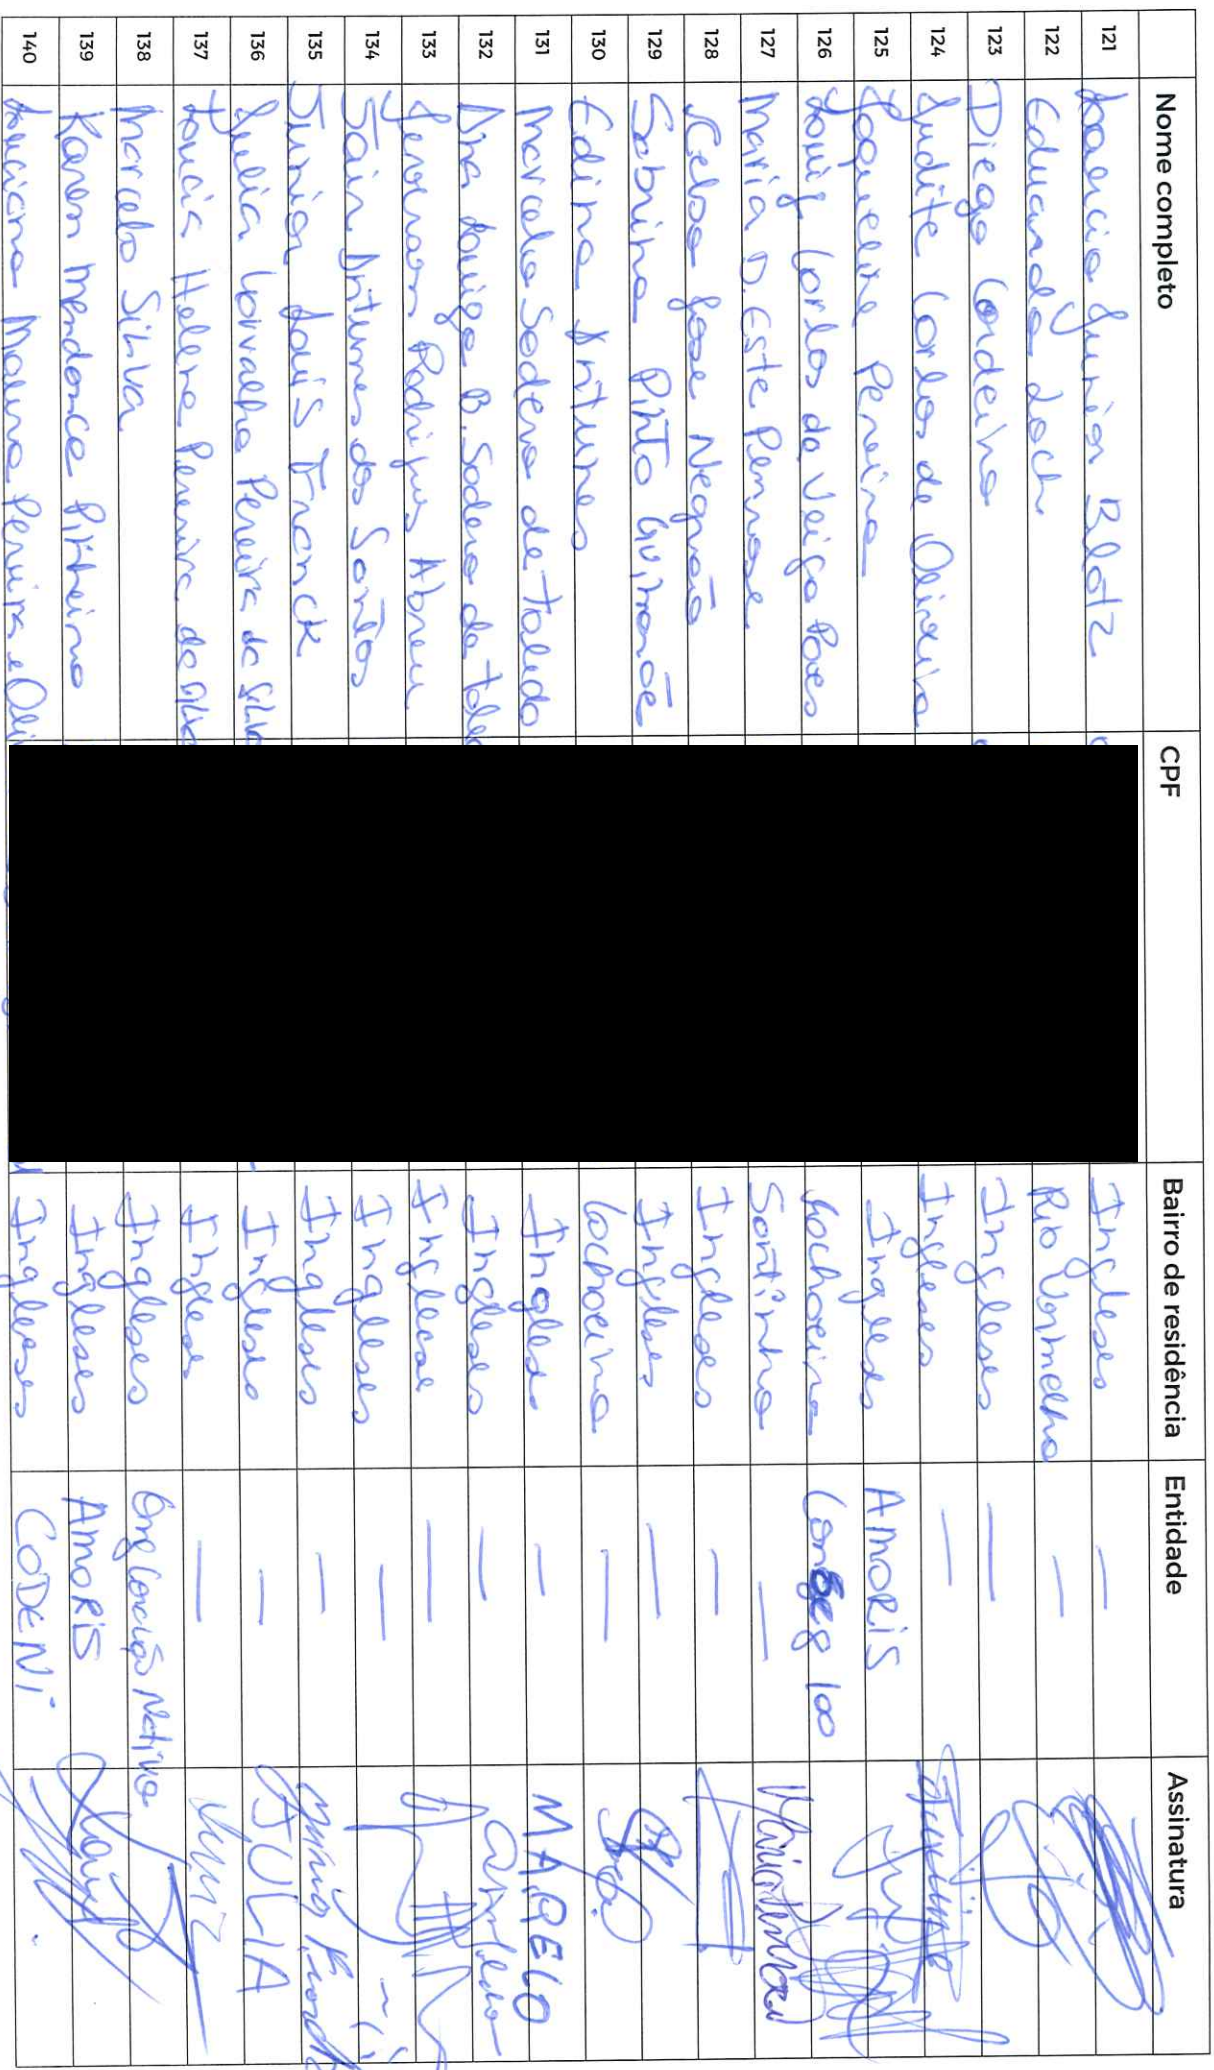 Nome completo CPF Bairro de residência Entidade Assinatura
121 Laercio Junior Blotz Ingleses —
122 Eduardo Loch Rio Vermelho —
123 Diego Cordeiro Ingleses —
124 Judite Carlos de Oliveira Ingleses —
125 Joqueline Pereira Ingleses AMORIS
126 Louiz Carlos da Veiga Paes Cachoeira Conseg 100
127 Maria D. Este Pennase Santinho —
128 Celso Jose Negrão Ingleses —
129 Sabrina Pinto Guimarães Ingleses —
130 Edina Antunes Cachoeira —
131 Marcelo Sodero de Toledo Ingleses — MARCELO
132 Ana Louiza B. Sodero de Toledo Ingleses —
133 Jeronson Rodrigues Abreu Ingleses —
134 Sair Antunes dos Santos Ingleses —
135 Junior Louis Franck Ingleses —
136 Julia Carvalho Pereira da Silva Ingleses — JULIA
137 Loucia Helena Pereira da Silva Ingleses —
138 Marcelo Silva Ingleses Ong Coração Nativo
139 Karen Mendonce Pinheiro Ingleses AMORIS
140 Louciana Moura Pereira e Oli Ingleses CODENI